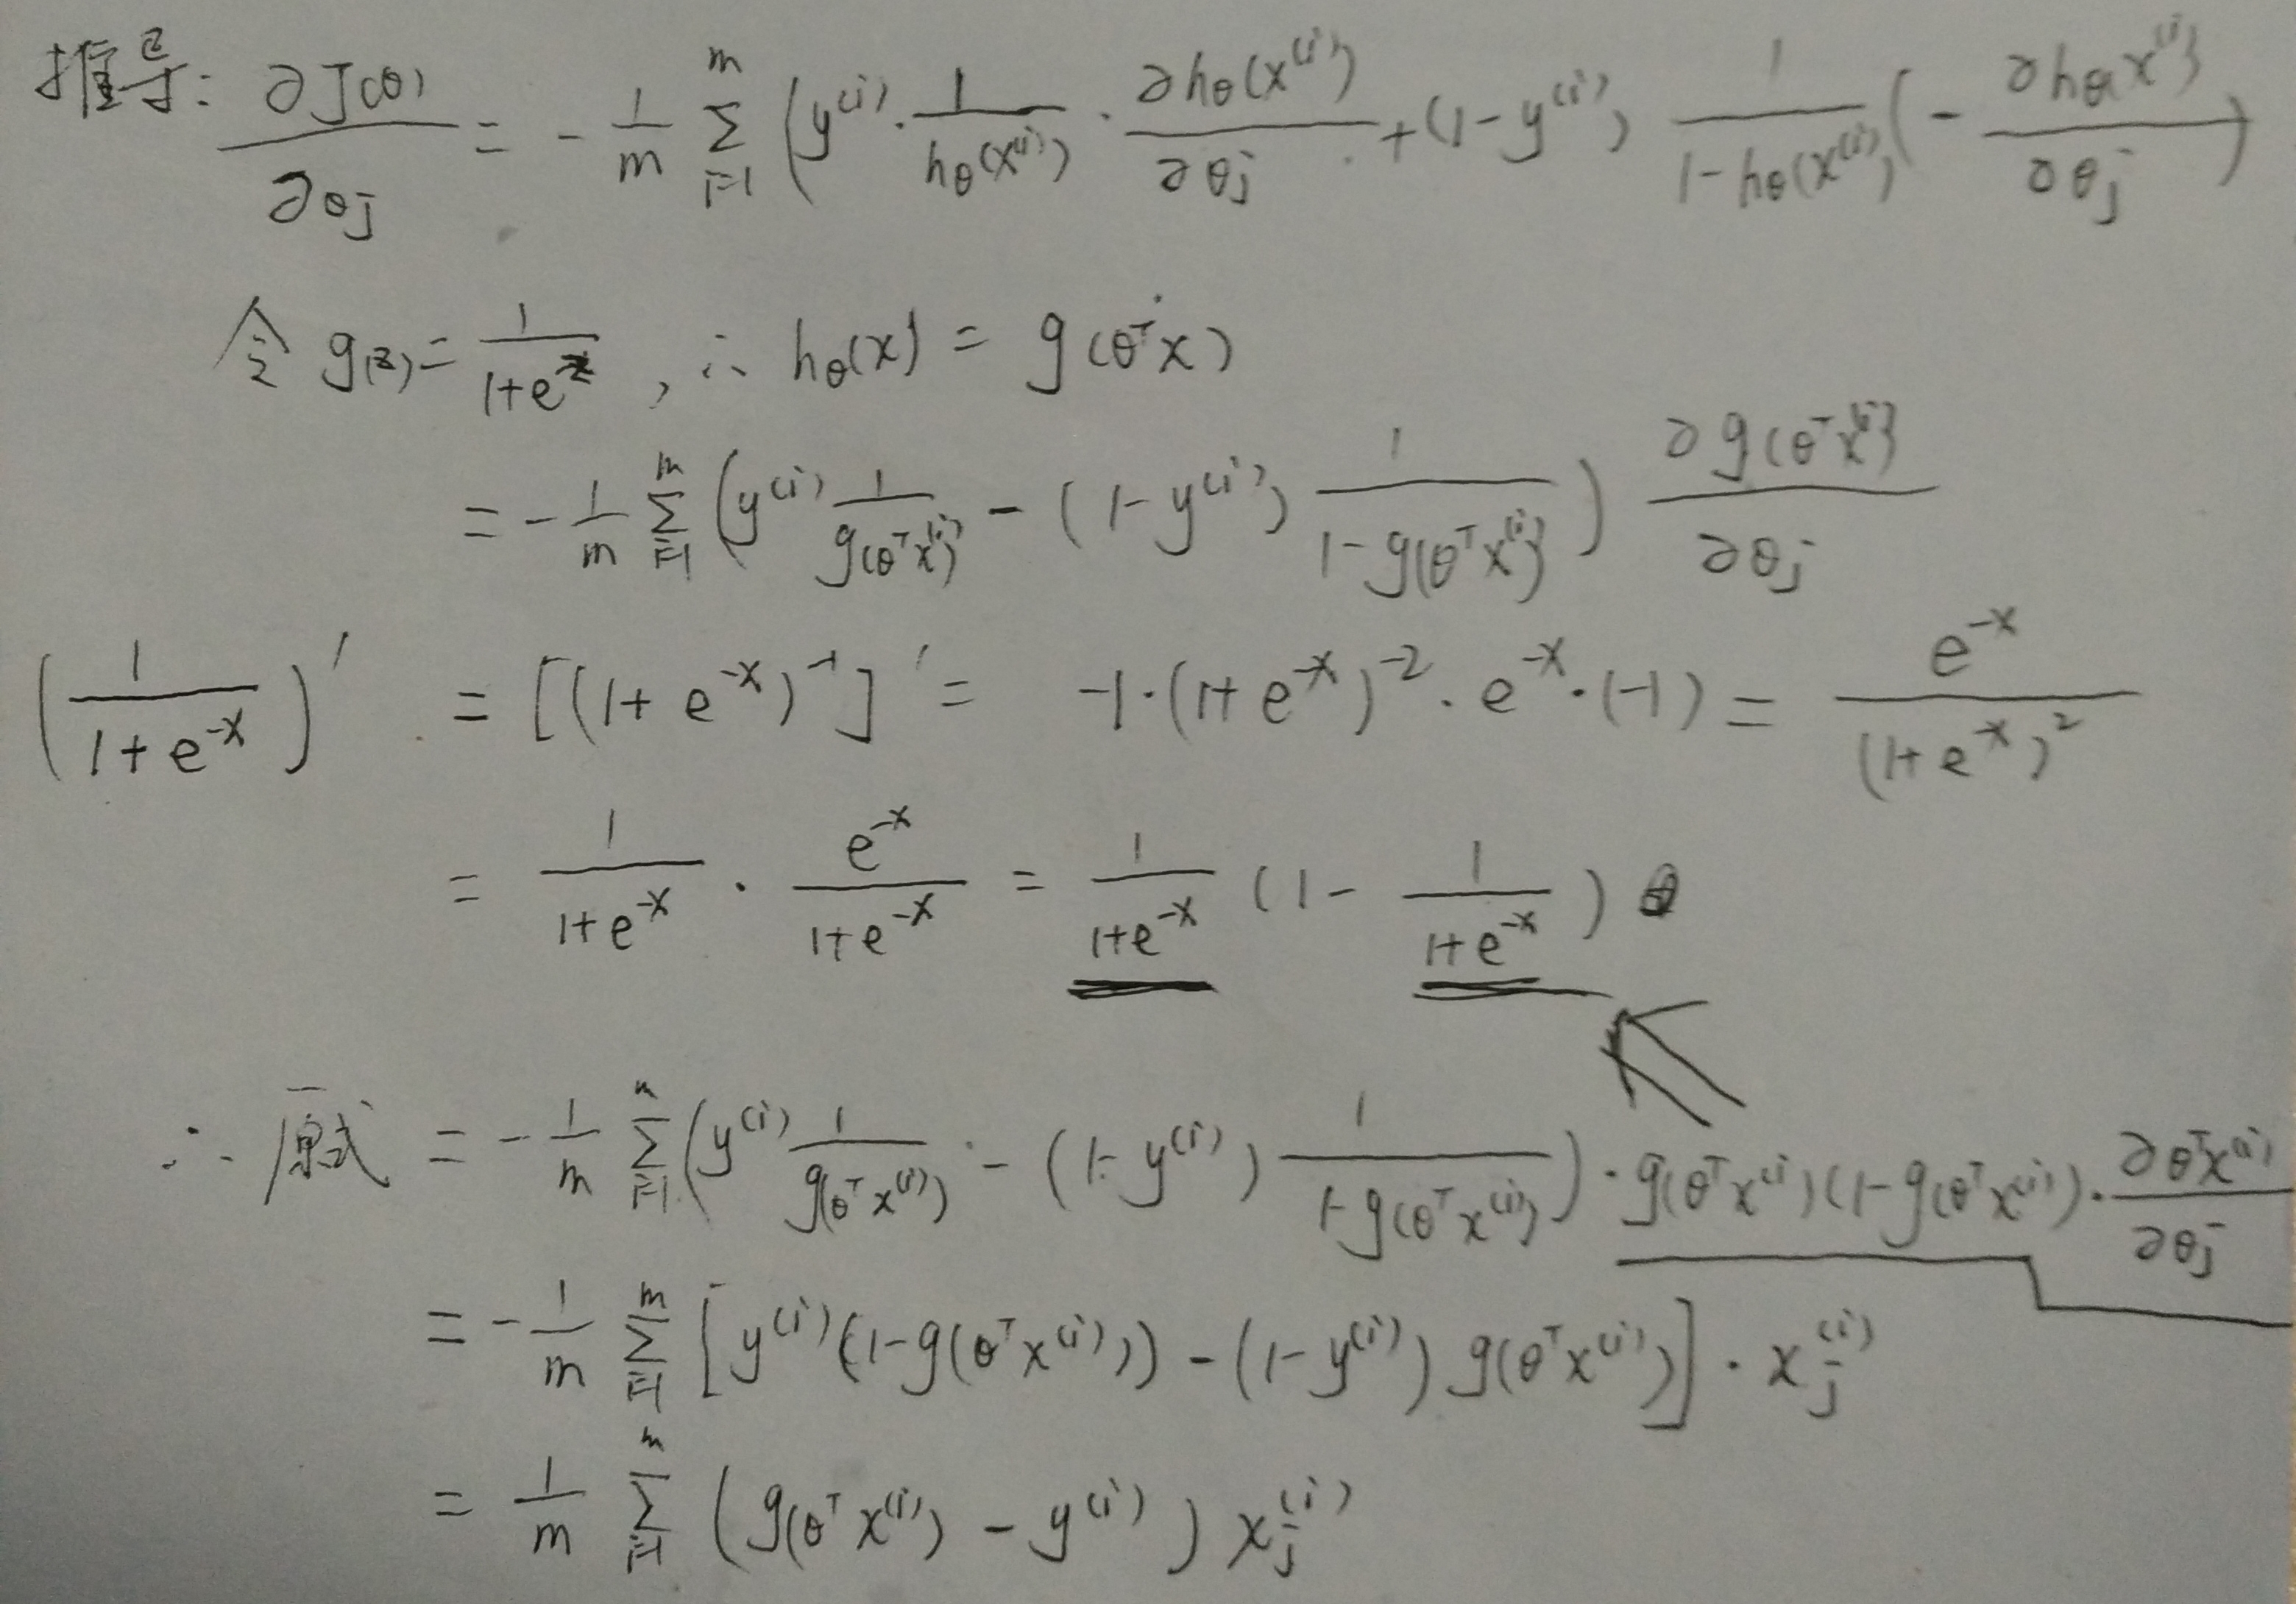 推导: ∂J(θ)/∂θj = - 1/m Σ_{i=1}^{m} (y^(i) · 1/hθ(x^(i)) · ∂hθ(x^(i))/∂θj + (1-y^(i)) 1/(1-hθ(x^(i))) (- ∂hθ(x^(i))/∂θj)
令 g(z) = 1/(1+e^-z) , ∴ hθ(x) = g(θ^T x)
= - 1/m Σ_{i=1}^{m} (y^(i) 1/g(θ^T x^(i)) - (1-y^(i)) 1/(1-g(θ^T x^(i)))) ∂g(θ^T x^(i))/∂θj
(1/(1+e^-x))' = [(1+e^-x)^-1]' = -1·(1+e^-x)^-2 · e^-x · (-1) = e^-x/(1+e^-x)^2
= 1/(1+e^-x) · e^-x/(1+e^-x) = 1/(1+e^-x) (1 - 1/(1+e^-x))
∴ 原式 = - 1/m Σ_{i=1}^{m} (y^(i) 1/g(θ^T x^(i)) - (1-y^(i)) 1/(1-g(θ^T x^(i)))) · g(θ^T x^(i))(1-g(θ^T x^(i))) · ∂θ^T x^(i)/∂θj
= - 1/m Σ_{i=1}^{m} [y^(i)(1-g(θ^T x^(i))) - (1-y^(i)) g(θ^T x^(i))] · x_j^(i)
= 1/m Σ_{i=1}^{m} (g(θ^T x^(i)) - y^(i)) x_j^(i)